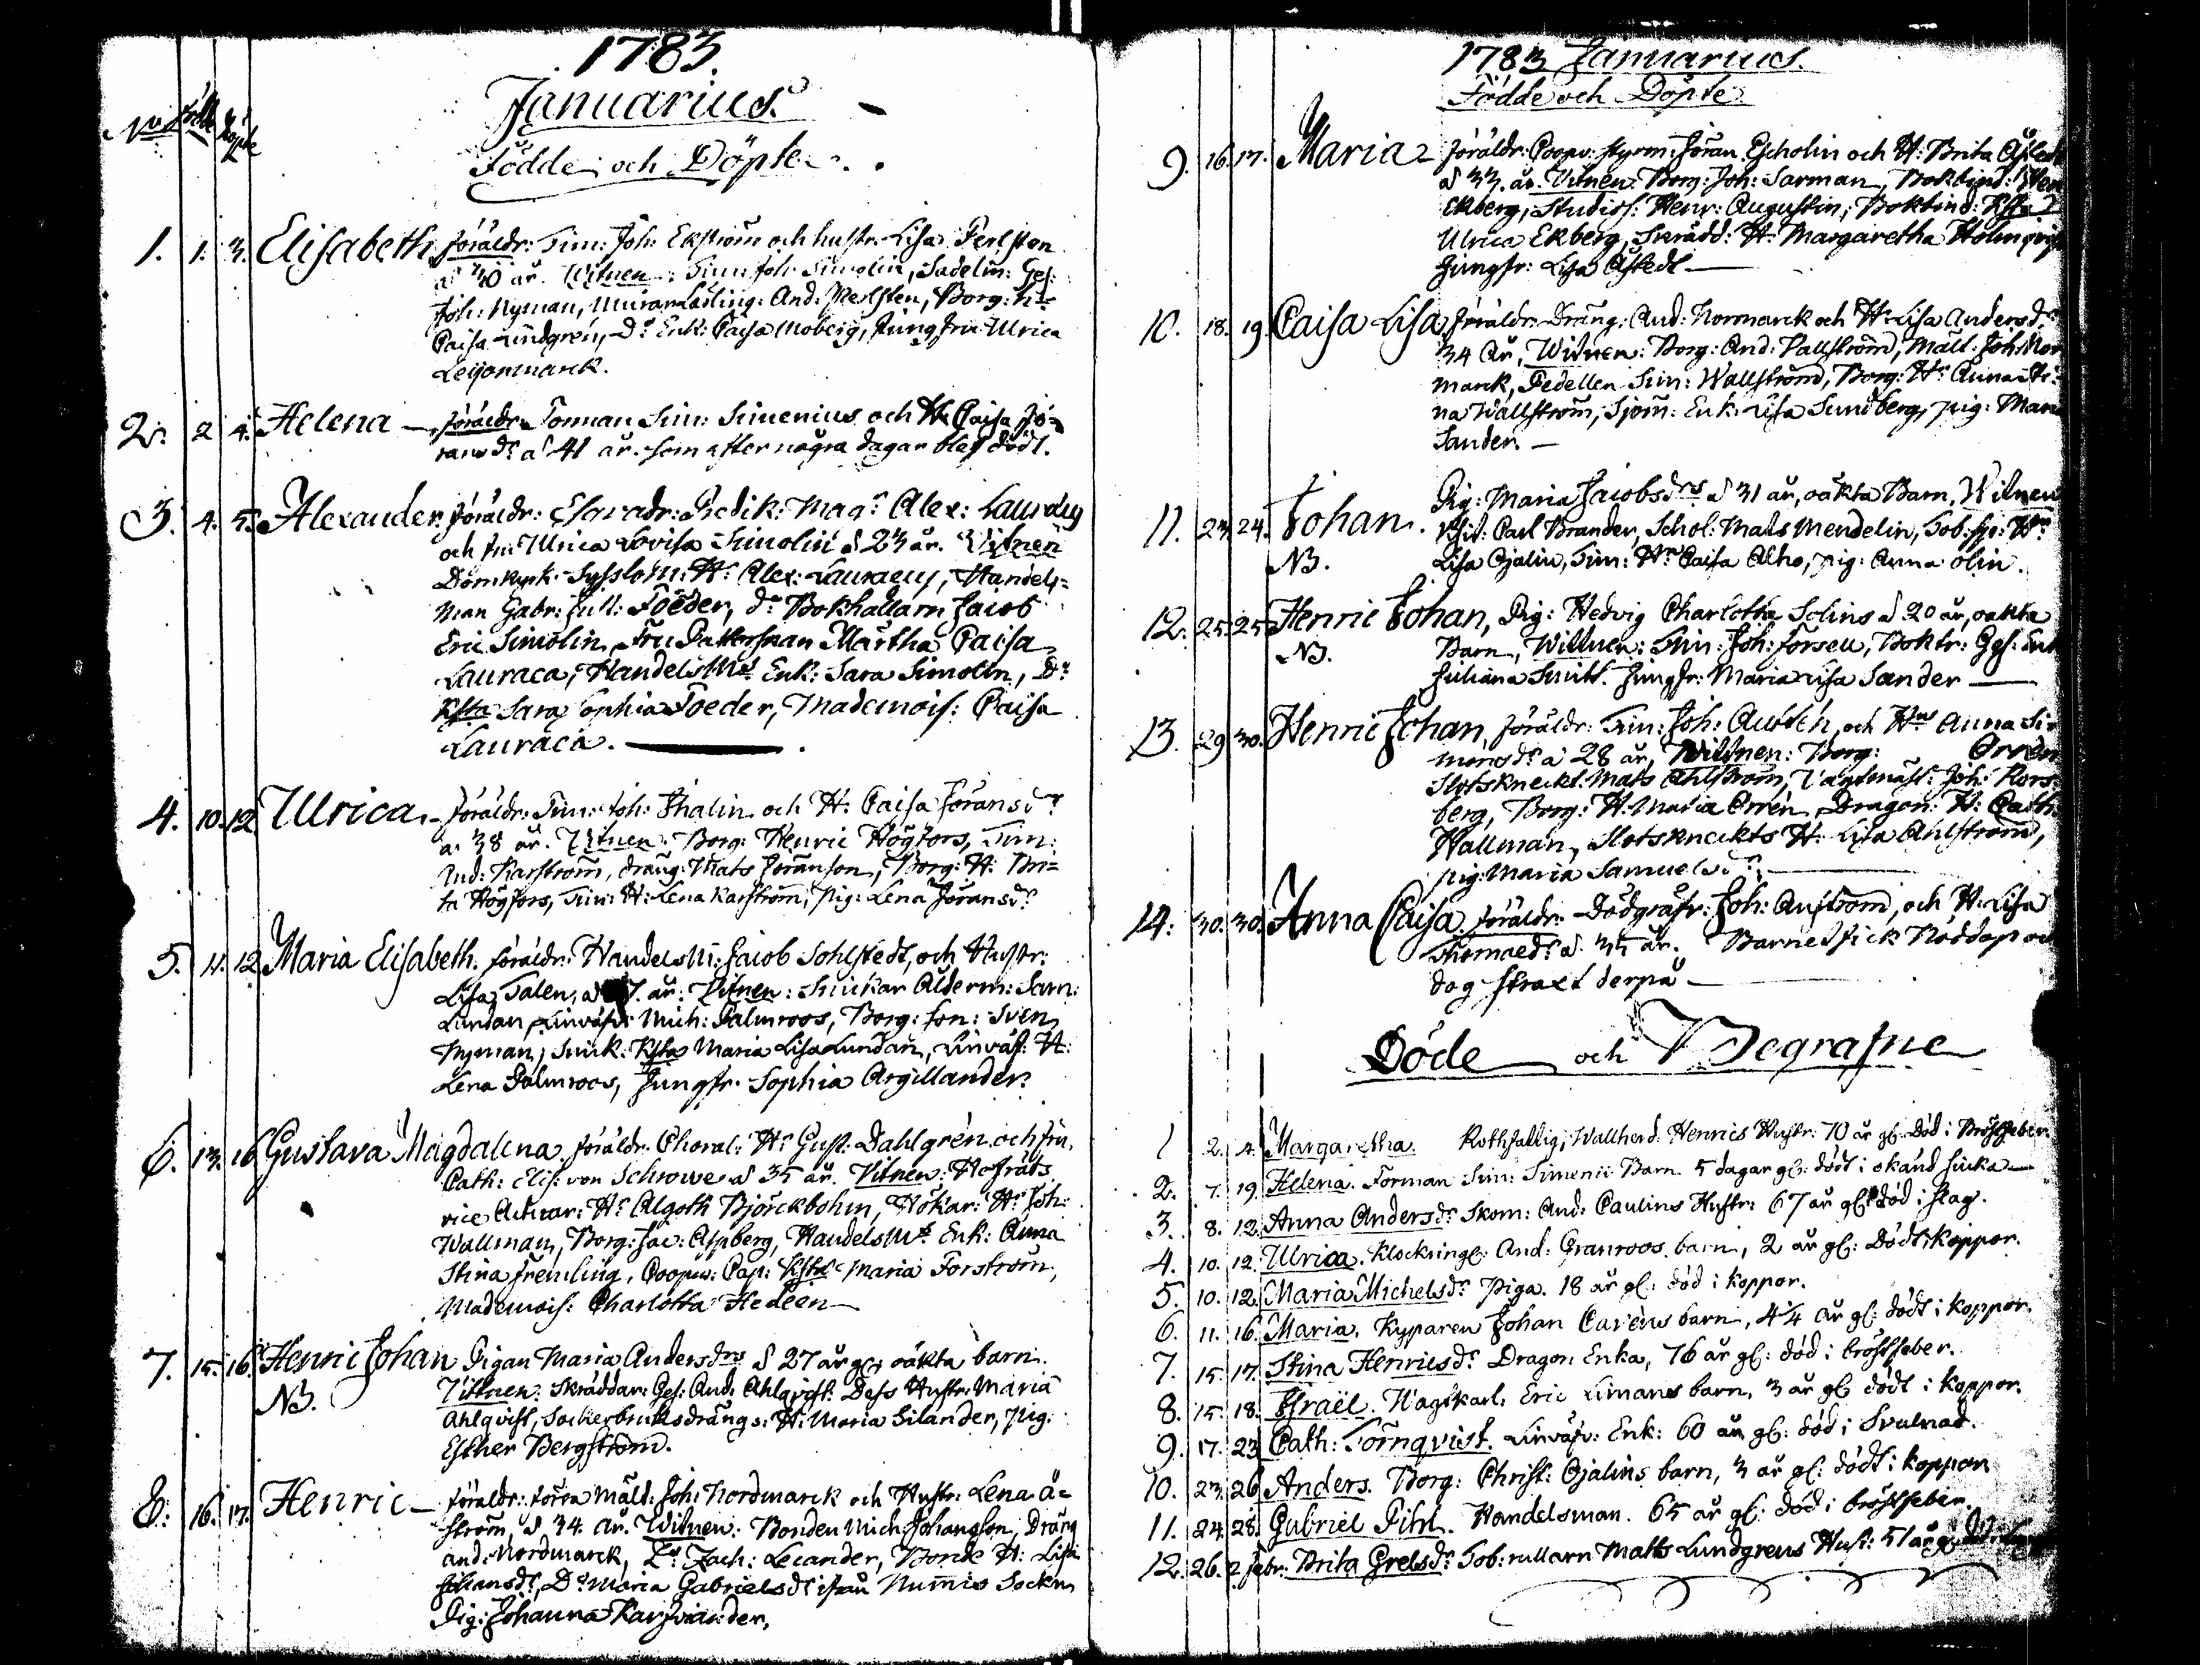 1783.
Januarius.
No Födde Döpte
Födde och Döpte.
1. 1. 3. Elisabeth föräldr: Tim: Joh: Ekström och hustr: Lisa Perlsten
a 30 år. Witnen: Tim: Joh: Simolin, Sadelm: Ges:
Joh: Nyman, Murar Lärling: And: Perlsten, Borg: h:
Caisa Lindgren, Do Enk: Caisa Moberg, Jungfru Ulrica
Leijonmarck.
2. 2 4. Helena föräldr: Forman Sim: Simenius och H: Caisa Jö-
rans dr a 41 år. som efter några dagar blef död.
3. 4. 5. Alexander. föräldr: Predik: Mag: Alex: Lauraeus
och fru Ulrica Lovisa Simolin a 23 år. Witnen
Domkyrk: Sysslom: Hr Alex: Lauraeus, Handels-
man Gabr: Foeder, do Bokhållarn Jacob
Eric Simolin, Fru Märtha Caisa
Lauraea, Handelsm: Enk: Sara Simolin, Do
Hstr Sara Sophia Foeder, Mademois: Caisa
Lauraea.
4. 10. 12 Ulrica. föräldr: Tim: Joh: Thalin och H: Caisa Jöransdr
a 38 år. Witnen: Borg: Henric Högfors, Tim:
And: Karström, dräng: Mats Jöranson, Borg: H: Bri-
ta Högfors, Tim: H: Lena Karström, pig: Lena Jöransdr
5. 11. 12 Maria Elisabeth. föräldr: Handelsm: Jacob Sohlstedt, och Hustr:
Lisa Talen, a år: Witnen: Snickar Ålderm: Sam:
Lundan, Linväfv: Mich: Palmroos, Borg: son: Sven
Nyman, Snick: Hstr Maria Lisa Lundan, Linväf: H:
Lena Palmroos, Jungfr: Sophia Argillander.
6. 13. 16 Gustava Magdalena föräldr: Choral: Hr Gust: Dahlgrén och fru
Cath: Elis: von Schrowe a 35 år. Vitnen: Hofräts
vice Actuar: Hr Algoth Björckbohm, Hökar: Hr Joh:
Wallman, Borg: Jac: Aspberg, Handelsm: Enk: Anna
Stina Fremling, Coopv: Cap: Hstr Maria Forström,
Mademois: Charlotta Hedeen
7. 15. 16. Henric Johan Pigan Maria Andersdrs a 27 år gl: oäkta barn.
NB. Vittnen: Skräddar: Ges: And: Ahlqvist, Dess Hustr: Maria
Ahlqvist, Sockerbruksdrängs: H: Maria Silander, pig:
Esther Bergström.
8. 16. 17. Henric föräldr: förra Mält: Joh: Nordmarck och Hustr: Lena å-
ström, a 34 år. Witnen: Bonden Mich Johansson, Dräng
And: Nordmarck, Do Zach: Lecander, Bonde H: Lisa
Johansdr, Do Maria Gabrielsdr ifrån Nummis Sockn
Pig: Johanna
1783 Januarius.
Födde och Döpte
9. 16. 17. Maria föräldr: Coopv: styrm: Jöran Escholin och H: Brita Åstedt
a 33 år. Vitnen: Borg: Joh: Sarman, Bokbind:
Ekberg, Studios: Henr: Augustin, Bokbind: Hstr
Ulrica Ekberg, Skrädd: H: Margaretha Holmqvist
Jungfr: Lisa Åstedt
10. 18. 19. Caisa Lisa föräldr: Dräng: And: Normarck och H: Lisa Andersdr
34 år, Witnen: Borg: And: Wallström, Mält: Joh: Nor
marck, Pedellen Sim: Wallström, Borg: Hr Anna Sti-
na Wallström, Sjöm: Enk: Lisa Sundberg, pig: Maria
Sander.
11. 23. 24. Johan. Pig: Maria Jacobsdrs a 31 år, oäkta Barn, Witnen
NB. Carl Brander, Schol: Mats Mendelin, Tob: sp: Hr
Lisa Gjalin, Tim: Hr Caisa Alho, pig: Anna Olin.
12. 25. 25 Henric Johan, Pig: Hedvig Charlotta Solins a 20 år, oäkta
NB. Barn, Wittnen: Tim: Joh: Forsell, Boktr: Ges: Enk
Juliana Smitt. Jungfr: Maria Lisa Sander
13. 29 30. Henric Johan, föräldr: Tim: Joh: och Hr Anna Si-
monsdr a 28 år, Wittnen: Borg: Orrén
Slotsknekt Mats Ahlström, Joh: Fors-
berg, Borg: H: Maria Orrén, Dragon: H: Cath:
Wallman, Slotsknekts H: Lisa Ahlström,
pig: Maria Samuelsdr
14. 30. 30. Anna Caisa. föräldr: Dödgräfr: Joh: Anström, och H: Lisa
Thomaedr a 35 år. Barnet fick Nöddop och
dog straxt derpå
Döde och Begrafne
1 2. 4. Margaretha. Rothfattig, Wallherd: Henrics Hustr: 70 år gl: död i Bröstfeber.
2. 7. 19. Helena. Forman Sim: Simenii Barn 5 dagar gl: dödt i okänd siuka
3. 8. 12. Anna Andersdr Skom: And: Paulins Hustr: 67 år gl: död i slag.
4. 10. 12. Ulrica. Klockring: And: Granroos barn, 2 år gl: dödt i koppor.
5. 10. 12. Maria Michelsdr Piga. 18 år gl: död i koppor.
6. 11. 16. Maria. Kyparen Johan Cavéns barn, 4 1/4 år gl: dödt i koppor.
7. 15. 17. Stina Henricsdr Dragon Enka, 76 år gl: död i bröstfeber.
8. 15. 18. Israël. Wagtkarl. Eric Limans barn, 3 år gl: dödt i koppor.
9. 17. 23 Cath: Törnqvist. Linväfv: Enk: 60 år gl: död i Svulnad.
10. 23. 26 Anders. Borg: Christ: Gjalins barn, 3 år gl: dödt i koppor
11. 24. 28. Gabriel Pihl. Handelsman. 65 år gl: död i bröstfeber.
12. 26. 2 febr. Brita Grelsdr Tob: rullarn Matts Lundgrens Hust: 51 år gl: